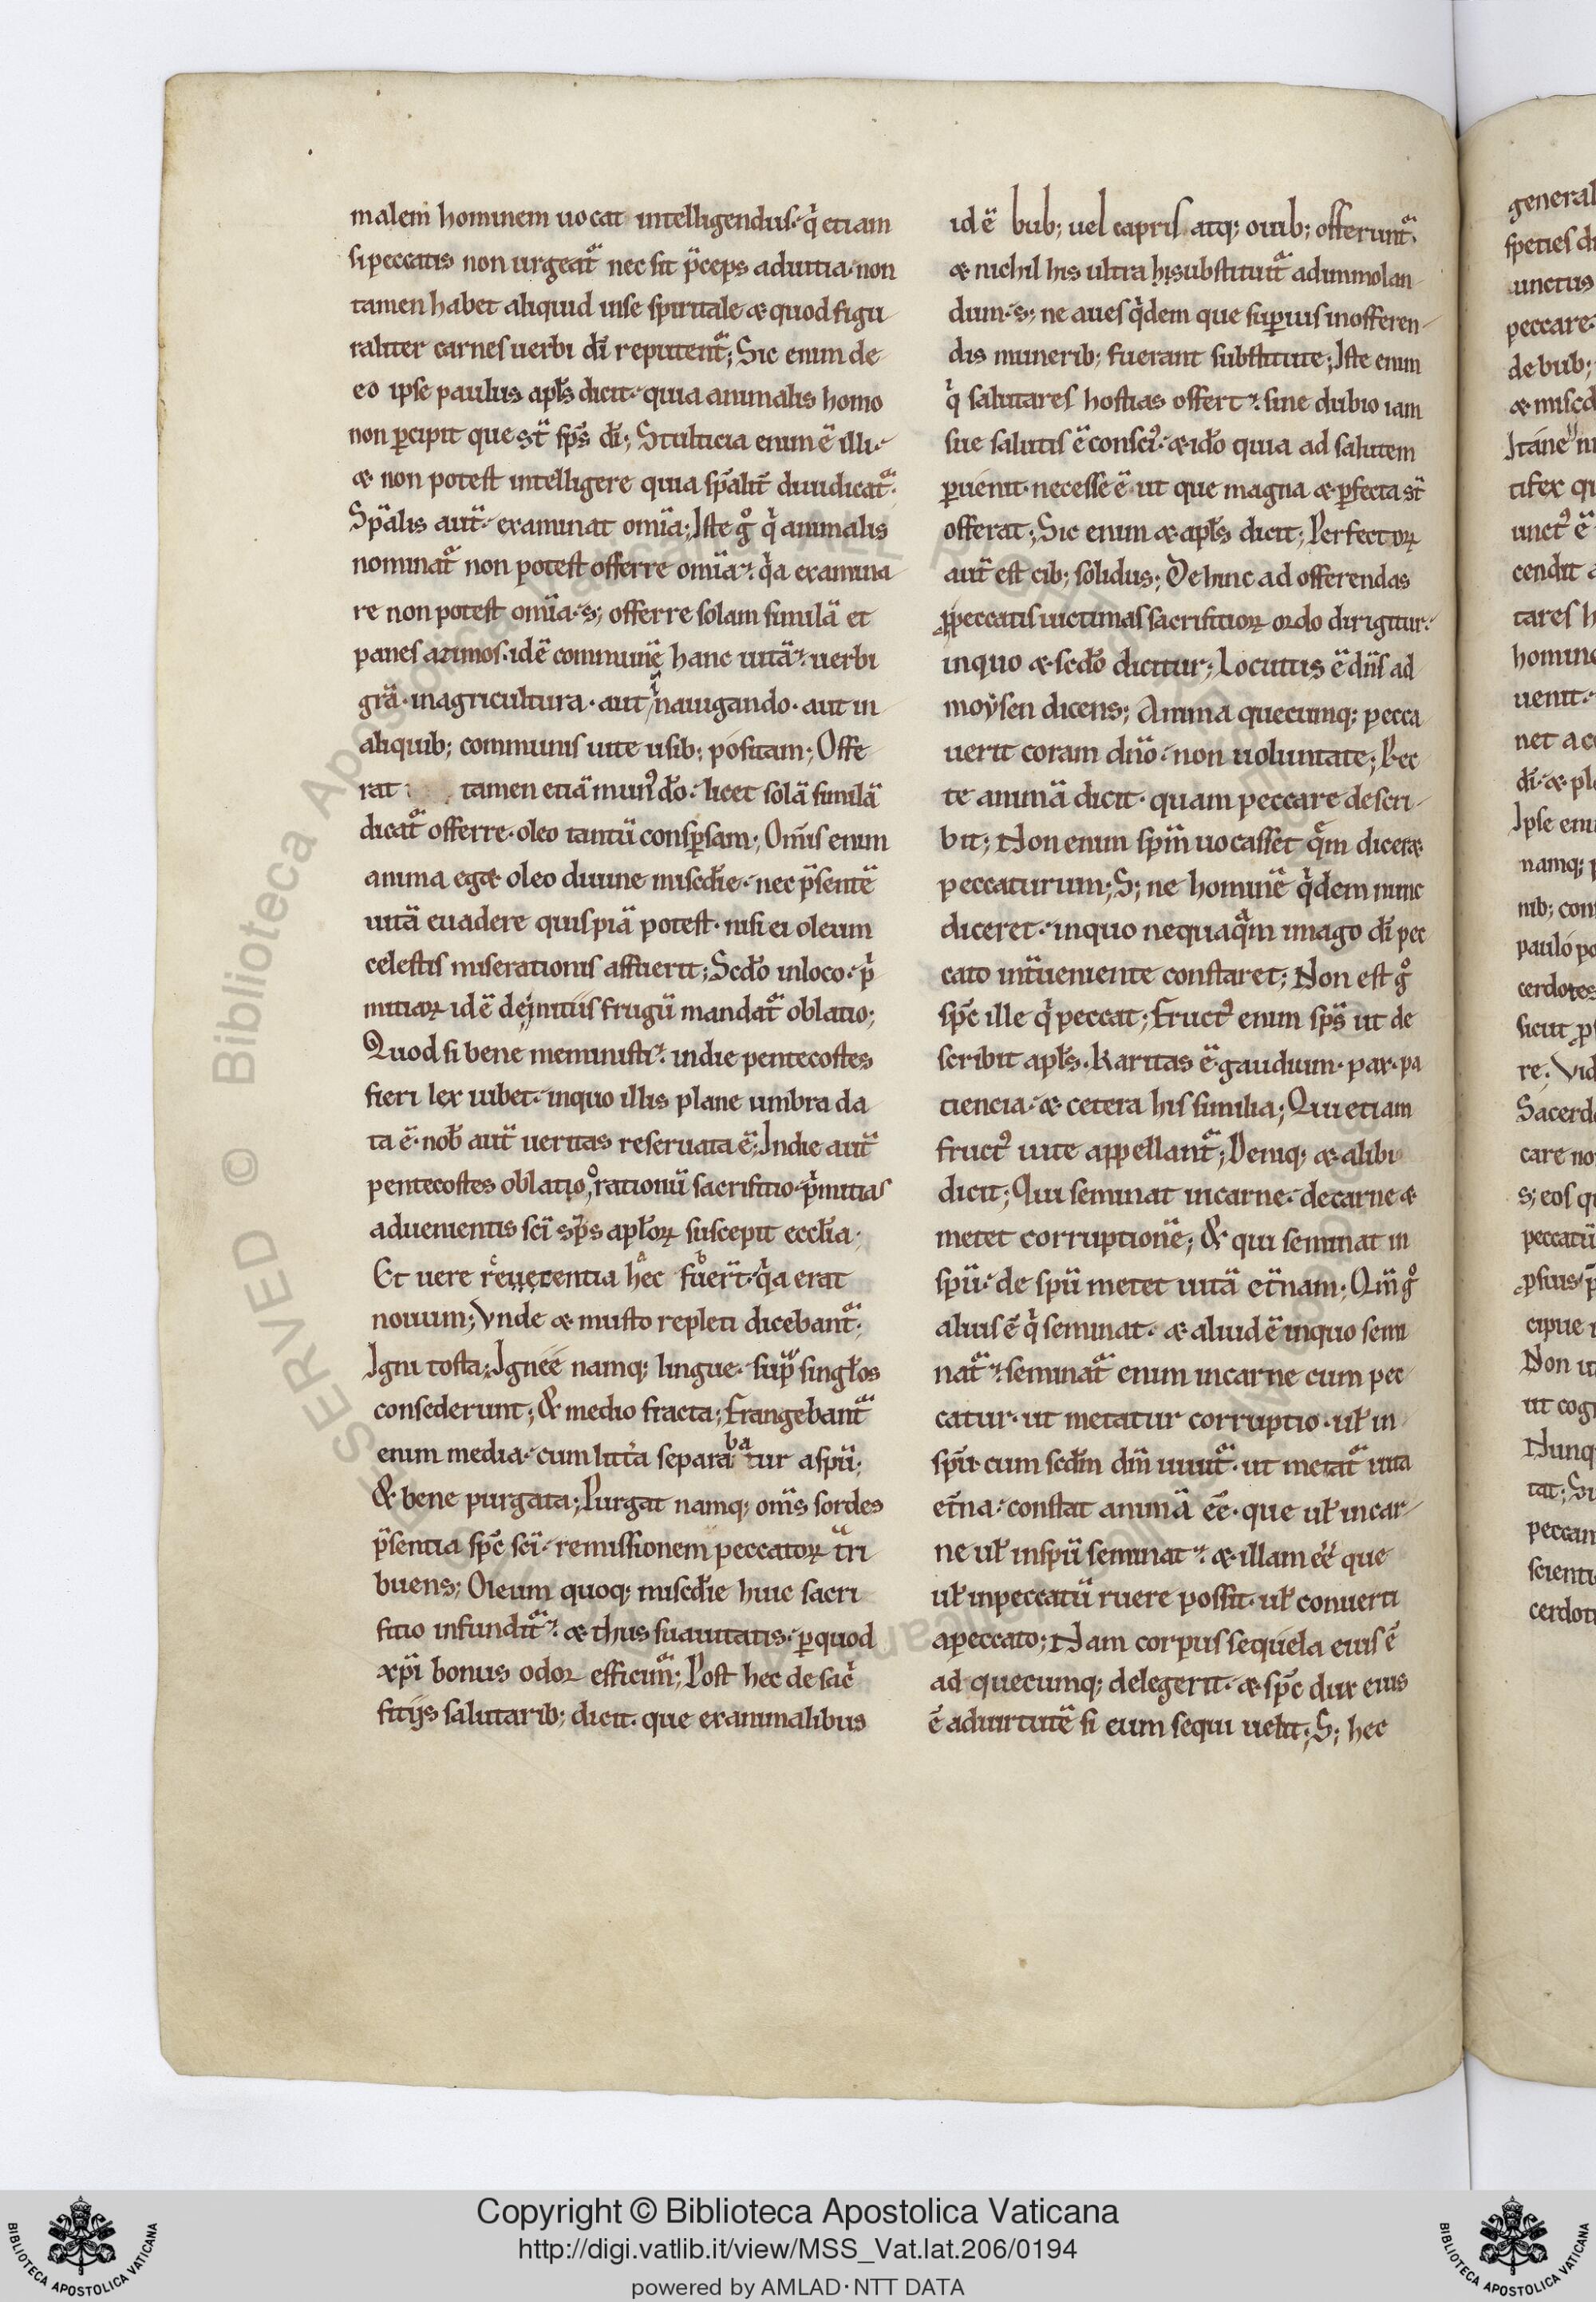 malem hominem uocat intelligendus· q̇ etiam
si peccatis non urgeat᷑ nec sit p̄ceps ad uitia· non
tamen habet aliquid in se spiritale & quod figu
raliter carnes uerbi dī reputent᷑; Sic enim de
eo ipse paulus apłs dicit· quia animalis homo
non ꝑcipit que st̄ sp̄s dī; Stulticia enim ē illi·
& non potest intelligere quia sp̄alit̄ diiudicat᷑·
Sp̄alis aut̄· examinat om̄ia; Iste g̊ q̇ animalis
nominat᷑ non potest offerre om̄ia· q̇a examina
re non potest om̄ia· s; offerre solam similā et
panes azimos· id ē communē hanc uitā· uerbi
grā· in agricultura· aut ī nauigando· aut in
aliquib; communis uite usib; positam; Offe
rat tamen etiā mun᷒ dō· licet solā similā
dicat᷑ offerre· oleo tantū consꝑsam; Om̄is enim
anima eget oleo diuine mis̄cdie· nec p̄sentē
uitā euadere quispiā potest· nisi ei oleum
celestis miserationis affuerit; Scdo in loco· ṗ
mitiaꝝ id ē de initiis frugū mandat᷑ oblatio;
Quod si bene meministi· in die pentecostes
fieri lex iubet· in quo illis plane umbra da
ta ē· nob̄ aut̄ ueritas reseruata ē; In die aut̄
pentecostes oblatio, orationū sacrifitio· ṗmitias
aduenientis sc̄i sp̄s apłoꝝ suscepit eccłia·
Et uere reuerentia hec fuer̄t· q̇a erat
nouum; Vnde & musto repleti dicebant᷑;
Igni tosta; Igneę namq; lingue· sup̄ singłos
consederunt; & medio fracta; Frangebant᷑
enim media· cum litt̄a separabatur a spū;
& bene purgata; Purgat namq; om̄s sordes
p̄sentia sp̄c sc̄i· remissionem peccatoꝝ t̄ri
buens; Oleum quoq; mis̄cdie huic sacri
fitio infundit᷑· & thus suauitatis· ꝑ quod
xp̄i bonus odor efficim᷑; Post hec de saċ
fitijs salutarib; dicit· que ex animalibus
id ē bub; uel capris atq; ouib; offerunt᷑·
& nichil his ultra hi substituit᷑ ad immolan
dum· s; ne aues q̇dem que suꝑius in offeren
dis munerib; fuerant substitute; Iste enim
q̇ salutares hostias offert· sine dubio iam
sue salutis ē consci᷒· & ido quia ad salutem
ꝑuenit· necesse ē· ut que magna & ꝑfecta st̄
offerat; Sic enim & apłs dicit; Perfectoꝝ
aut̄ est cib; solidus; Dehinc ad offerendas
ꝓ peccatis uictimas sacrifitioꝝ ordo dirigitur·
in quo & scdo dicitur; Locutus ē dn̄s ad
moysen dicens; Anima quecumq; pecca
uerit coram dn̄o· non uoluntate; Rec
te animā dicit· quam peccare descri
bit; Non enim sp̄m uocasset q̄m diceret
peccaturum; S; ne hominē q̇dem nunc
diceret· in quo nequaq̄m imago dī pec
cato int̄ueniente constaret; Non est g̊
sp̄c ille q̇ peccat; Fruct᷒ enim sp̄s ut de
scribit apłs· Karitas ē· gaudium· pax· pa
ciencia· & cetera his similia; Qui etiam
fruct᷒ uite appellant᷑; Deniq; & alibi
dicit; Qui seminat in carne· de carne &
metet corruptionē; & qui seminat in
spū· de spū metet uitā et̄nam; Qm̄ g̊
alius ē q̇ seminat· & aliud ē in quo semi
nat᷑· seminat᷑ enim in carne cum pec
catur· ut metatur corruptio· uł in
spū· cum scdm dm̄ uiuit᷑· ut metat᷑ uita
et̄na· constat animā eē· que uł in car
ne uł in spū seminat· & illam eē que
uł in peccatū ruere possit· uł conuerti
a peccato; Nam corpus sequela eius ē
ad quecumq; delegerit· & sp̄c dux eius
ē ad uirtutē si eum sequi uelit; S; hec
general
speties
unctus
peccare·
de bub;
tifex
cendit
tares
uenit·
Ipse
namq;
nib;
paulo
cerdotes
sicut
re·
care
s; eos
peccatū
cipue
Non
ut
tat;
scienti
Copyright © Biblioteca Apostolica Vaticana
http://digi.vatlib.it/view/MSS_Vat.lat.206/0194
powered by AMLAD·NTT DATA
BIBLIOTECA APOSTOLICA VATICANA
BIBLIOTECA APOSTOLICA VATICANA